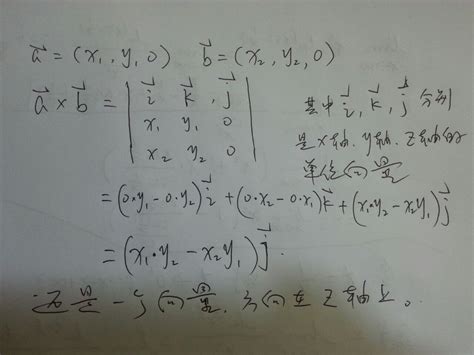 a⃗ = (x₁, y₁, 0)  b⃗ = (x₂, y₂, 0)
a⃗ × b⃗ = | i⃗ k⃗, j⃗ |
| x₁ y₁ 0 |
| x₂ y₂ 0 |
其中 i⃗, k⃗, j⃗ 分别
是X轴、Y轴、Z轴的
单位向量
= (0·y₁ - 0·y₂) i⃗ + (0·x₂ - 0·x₁) k⃗ + (x₁·y₂ - x₂y₁) j⃗
= (x₁·y₂ - x₂y₁) j⃗.
这是一个向量,方向在Z轴上。